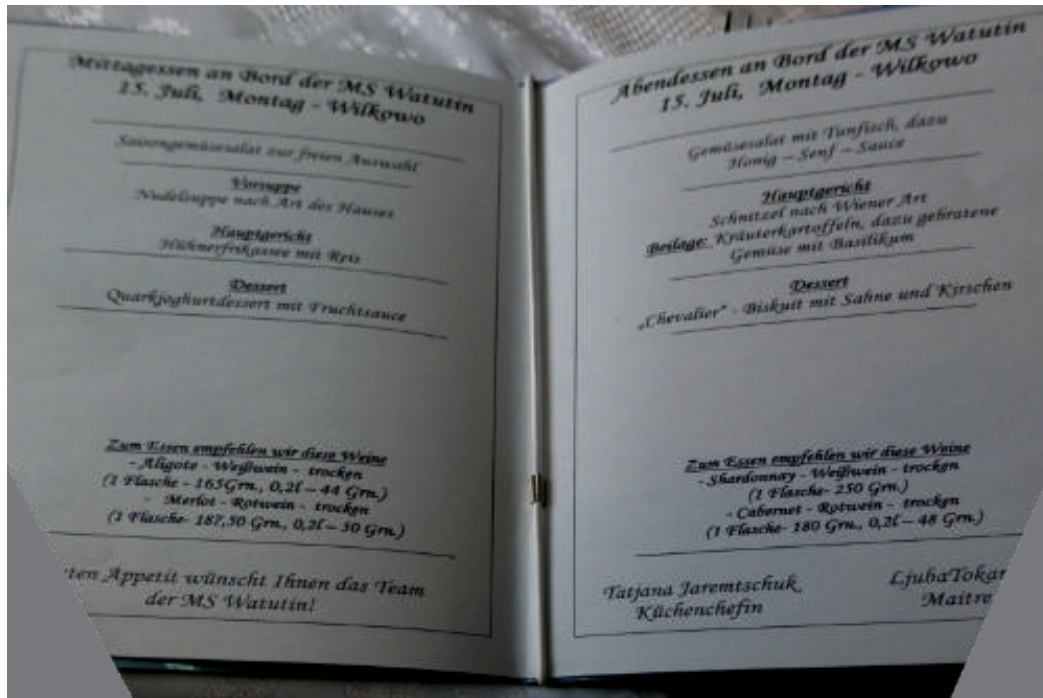 Mittagessen an Bord der MS Watutin
15. Juli, Montag - Wilkowo
Saisongemüsesalat zur freien Auswahl
Vorsuppe
Nudelsuppe nach Art des Hauses
Hauptgericht
Hühnerfrikassee mit Reis
Dessert
Quarkjoghurtdessert mit Fruchtsauce
Zum Essen empfehlen wir diese Weine
- Aligote - Weißwein - trocken
(1 Flasche - 165Grn., 0,2l – 44 Grn.)
- Merlot - Rotwein - trocken
(1 Flasche- 187,50 Grn., 0,2l – 50 Grn.)
ten Appetit wünscht Ihnen das Team
der MS Watutin!
Abendessen an Bord der MS Watutin
15. Juli, Montag - Wilkowo
Gemüsesalat mit Tunfisch, dazu
Honig – Senf – Sauce
Hauptgericht
Schnitzel nach Wiener Art
Beilage: Kräuterkartoffeln, dazu gebratene
Gemüse mit Basilikum
Dessert
„Chevalier" - Biskuit mit Sahne und Kirschen
Zum Essen empfehlen wir diese Weine
- Shardonnay - Weißwein - trocken
(1 Flasche- 250 Grn.)
- Cabernet - Rotwein - trocken
(1 Flasche- 180 Grn., 0,2l – 48 Grn.)
Tatjana Jaremtschuk LjubaTokar
Küchenchefin Maitre